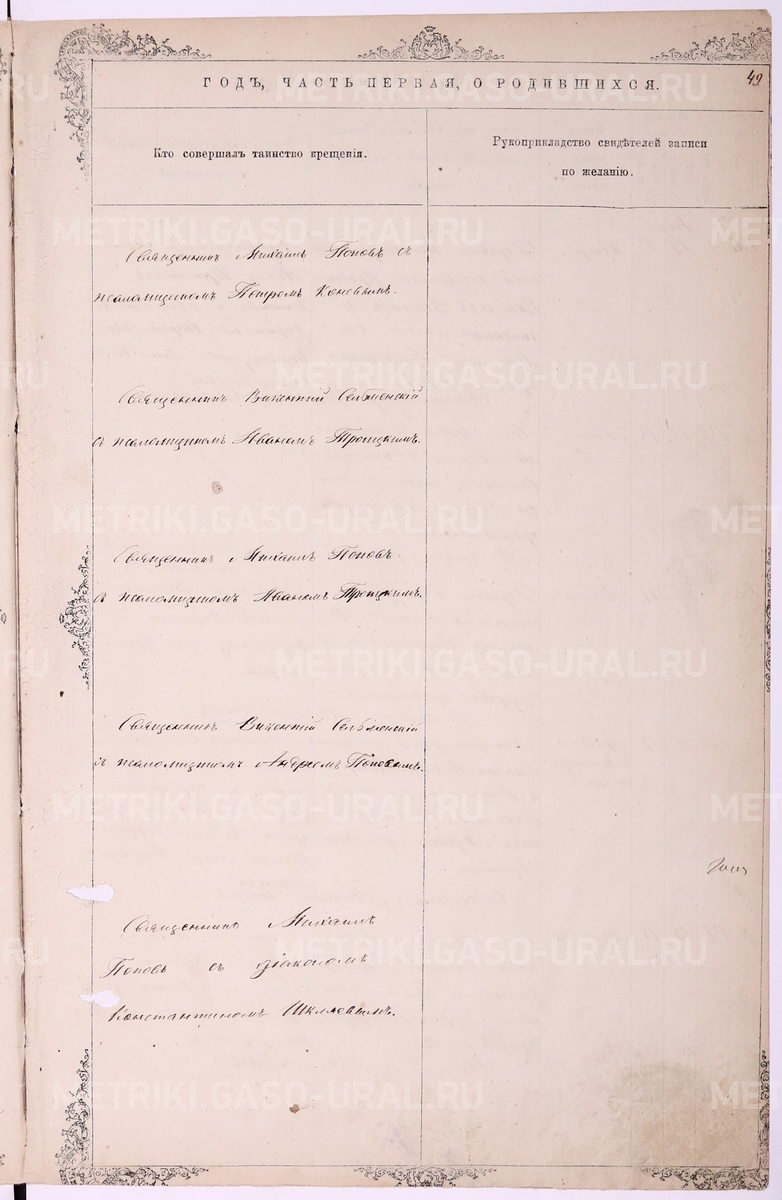 49
ГОДЪ, ЧАСТЬ ПЕРВАЯ, О РОДИВШИХСЯ.
Кто совершалъ таинство крещенія.
Рукоприкладство свидѣтелей записи
по желанію.
Священникъ Михаилъ Поповъ съ
псаломщикомъ Петромъ
Священникъ Викентій Сельменскій
съ псаломщикомъ Иваномъ Троицкимъ.
Священникъ Михаилъ Поповъ
съ псаломщикомъ Иваномъ Троицкимъ.
Священникъ Викентій Сельменскій
съ псаломщикомъ Андреемъ Поповымъ.
Священникъ Михаилъ
Поповъ съ діакономъ
Константиномъ Шкляевымъ.
METRIKI.GASO-URAL.RU